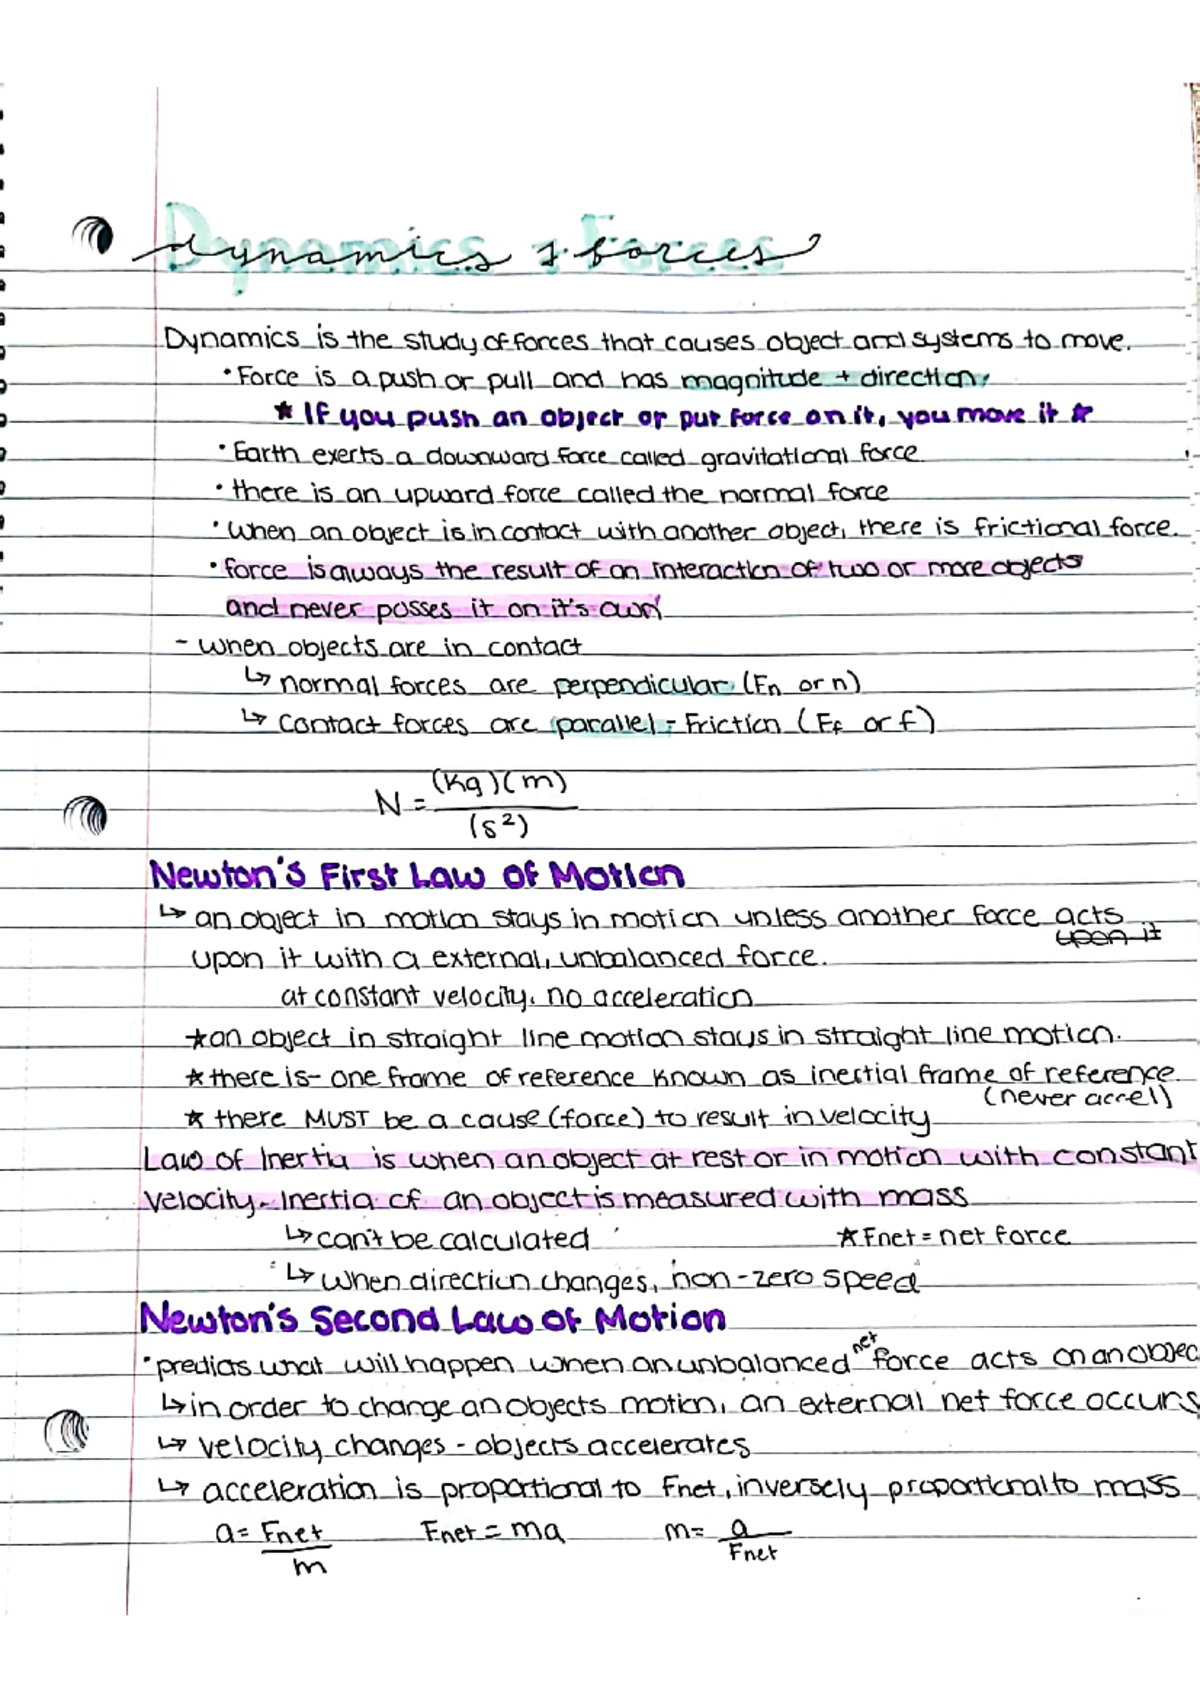 Dynamics & Forces
Dynamics is the study of forces that causes object and systems to move.
• Force is a push or pull and has magnitude + direction.
★ If you push an object or put force on it, you move it ★
• Earth exerts a downward force called gravitational force
• there is an upward force called the normal force
• when an object is in contact with another object, there is frictional force.
• force is always the result of an interaction of two or more objects
and never posses it on it's own
- when objects are in contact
↳ normal forces are perpendicular (Fn or n)
↳ contact forces are parallel - Friction (Ff or f)
N = (kg)(m)
(s²)
Newton's First Law of Motion
↳ an object in motion stays in motion unless another force acts
upon it
upon it with a external, unbalanced force.
at constant velocity. no acceleration
★ an object in straight line motion stays in straight line motion.
★ there is - one frame of reference known as inertial frame of reference
(never accel)
★ there MUST be a cause (force) to result in velocity
Law of Inertia is when an object at rest or in motion with constant
velocity. Inertia of an object is measured with mass
↳ can't be calculated ★ Fnet = net force
↳ when direction changes, non-zero speed
Newton's Second Law of Motion
• predicts what will happen when an unbalanced net force acts on an objec
↳ in order to change an objects motion, an external net force occurs
↳ velocity changes - objects accelerates
↳ acceleration is proportional to Fnet, inversely proportional to mass
a = Fnet Fnet = ma m = a
m Fnet